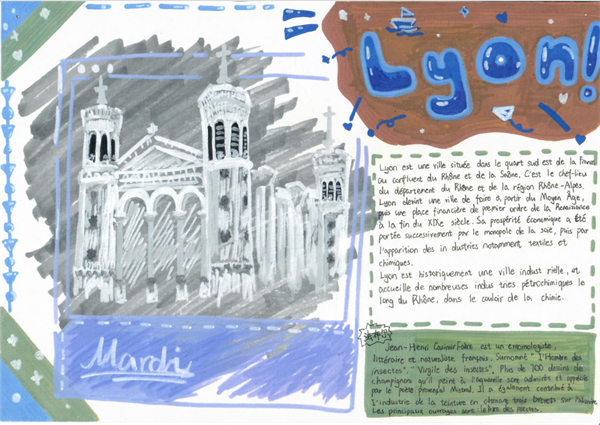 Lyon!
Lyon est une ville située dans le quart sud est de la France
au confluent du Rhône et de la Saône. C'est le chef-lieu
du département du Rhône et de la région Rhône-Alpes.
Lyon devint une ville de foire a partir du Moyen Âge,
puis une place financière de premier ordre de la Renaissance
à la fin du XIXe siècle. Sa prospérité économique a été
portée successivement par le monopole de la soie, puis par
l'apparition des in dustries notamment textiles et
chimiques.
Lyon est historiquement une ville indust rielle, et
accueille de nombreuses indus tries pétrochimiques le
long du Rhône, dans le couloir de la chimie.
Mardi
Jean-Henri Casimir Fabre est un entomologiste
littéraire et naturaliste français. Surnommé "l'Homère des
insectes", "Virgile des insectes". Plus de 700 dessins de
champignons qu'il peint à l'aquarelle sont admirés et
par le poète provençal Mistral. Il a également contribué à
l'industrie de la teinture en trois brevets sur
Les principaux ouvrages sont